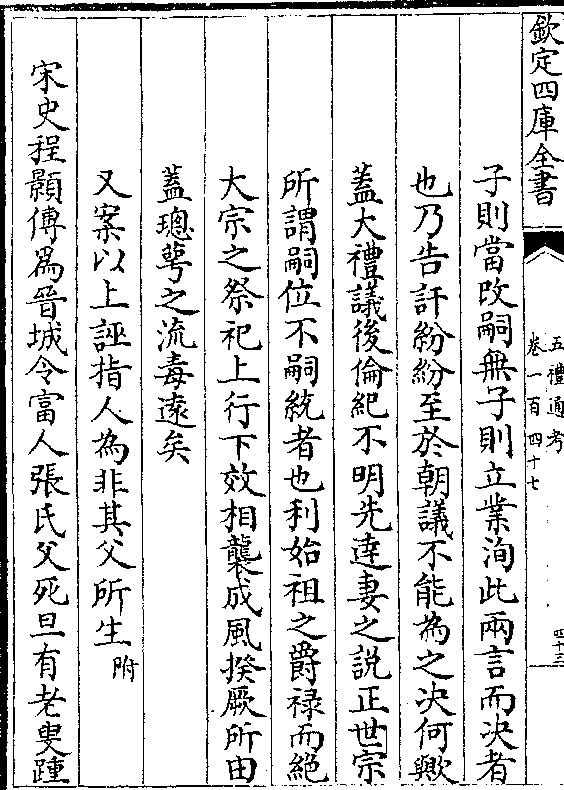 欽定四庫全書
五禮通考
卷一百四十七
四十三
子則當改嗣無子則立業洵此兩言而決者
也乃告訐紛紛至於朝議不能為之決何歟
蓋大禮議後倫紀不明先達妻之説正世宗
所謂嗣位不嗣統者也利始祖之爵禄而絶
大宗之祭祀上行下效相襲成風揆厥所由
蓋璁蕚之流毒遠矣
又案以上誣指人為非其父所生附
宋史程顥傳為晉城令富人張氏父死旦有老叟踵